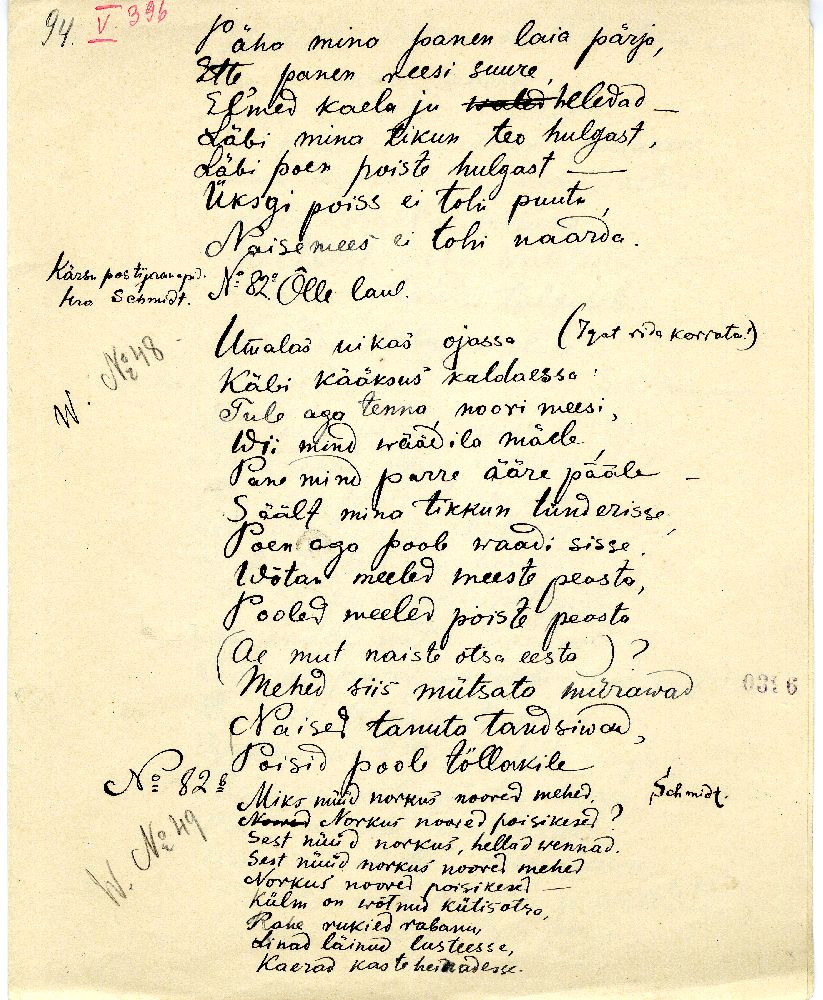 94. V 396
Päha mina panen laia pärja,
Ette panen neesi suure,
Elmed kaela ju heledad —
Läbi mina tikun teo hulgast,
Läbi poen poiste hulgast —
Üksgi poiss ei tohi puutu,
Naisemees ei tohi naarda.
Kärsu
hra Schmidt.
No 82a Õlle laul.
Umalas uikas ojassa (Igat rida korrata!)
W. No 48
Käbi kääksus kaldaessa:
Tule aga tenna, noori meesi,
Wii mind wäädila mäele,
Pane mind parre ääre pääle —
Säält mina tikkun tünderisse,
Poen aga poole waadi sisse.
Wõtan meeled meeste peasta,
Pooled meeled poiste peasta
(Ae mut naiste otsa eesta)?
Mehed siis mütsata mürawad
0396
Naised tanuta tandsiwad,
Poisid poole töllakile
No 82b
Schmidt.
Miks nüüd norkus noored mehed,
Norkus noored poisikesed?
W. No 49
Sest nüüd norkus, hellad wennad.
Sest nüüd norkus noored mehed
Norkus noored poisikesed —
Külm on wõtnud kütisotsa,
Rahe rukied rabanu,
Linad läinud lusteesse,
Kaerad kasteheinadesse.